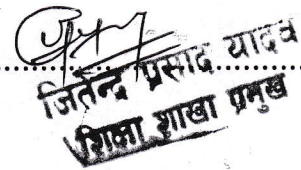 जितेन्द्र प्रसाद यादव
शिक्षा शाखा प्रमुख